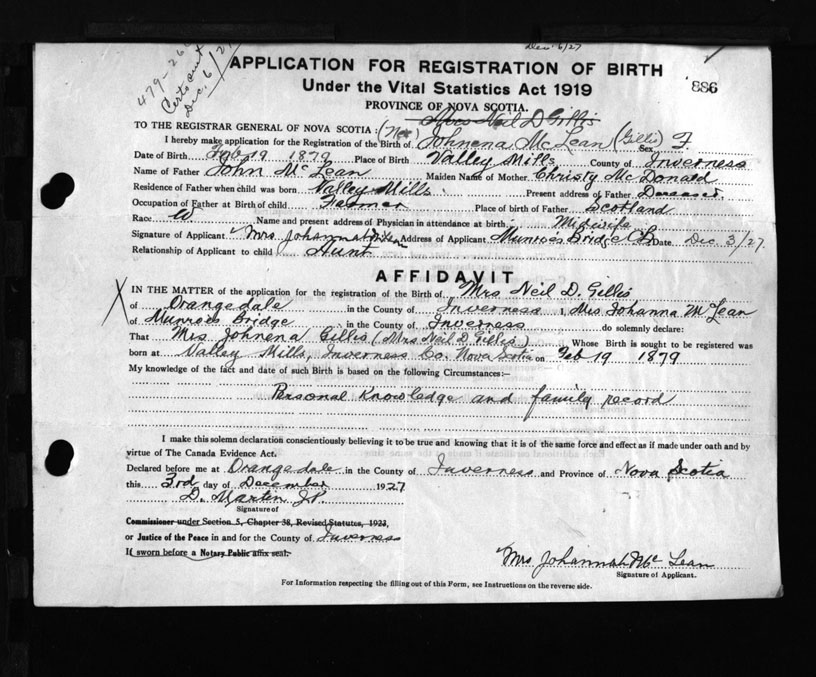 Dec 6/27
479-26
Certs sent
Dec. 6/27
APPLICATION FOR REGISTRATION OF BIRTH
886
Under the Vital Statistics Act 1919
PROVINCE OF NOVA SCOTIA.
Mrs Neil D Gillis
TO THE REGISTRAR GENERAL OF NOVA SCOTIA:
I hereby make application for the Registration of the Birth of Johnena McLean (Gillis) Sex F.
Date of Birth Feb 19 1879 Place of Birth Valley Mills County of Inverness
Name of Father John McLean Maiden Name of Mother Christy McDonald
Residence of Father when child was born Valley Mills Present address of Father Deceased.
Occupation of Father at Birth of child Farmer Place of birth of Father Scotland
Race W Name and present address of Physician in attendance at birth Midwife
Signature of Applicant Mrs Johannah McLean Address of Applicant Munroes Bridge CB Date Dec 3/27
Relationship of Applicant to child Aunt
AFFIDAVIT
IN THE MATTER of the application for the registration of the Birth of Mrs Neil D. Gillis
of Orangedale in the County of Inverness I, Mrs Johanna McLean
of Munroes Bridge in the County of Inverness do solemnly declare:
That Mrs. Johnena Gillis (Mrs Neil D. Gillis) Whose Birth is sought to be registered was
born at Valley Mills, Inverness Co. Nova Scotia on Feb 19 1879
My knowledge of the fact and date of such Birth is based on the following Circumstances:-
Personal Knowledge and family record
I make this solemn declaration conscientiously believing it to be true and knowing that it is of the same force and effect as if made under oath and by
virtue of The Canada Evidence Act.
Declared before me at Orangedale in the County of Inverness and Province of Nova Scotia
this 3rd day of December 1927
D. Martin J.P.
Signature of
Commissioner under Section 5, Chapter 38, Revised Statutes, 1923,
or Justice of the Peace in and for the County of Inverness
If sworn before a Notary Public affix seal.
Mrs Johannah McLean
Signature of Applicant.
For Information respecting the filling out of this Form, see Instructions on the reverse side.